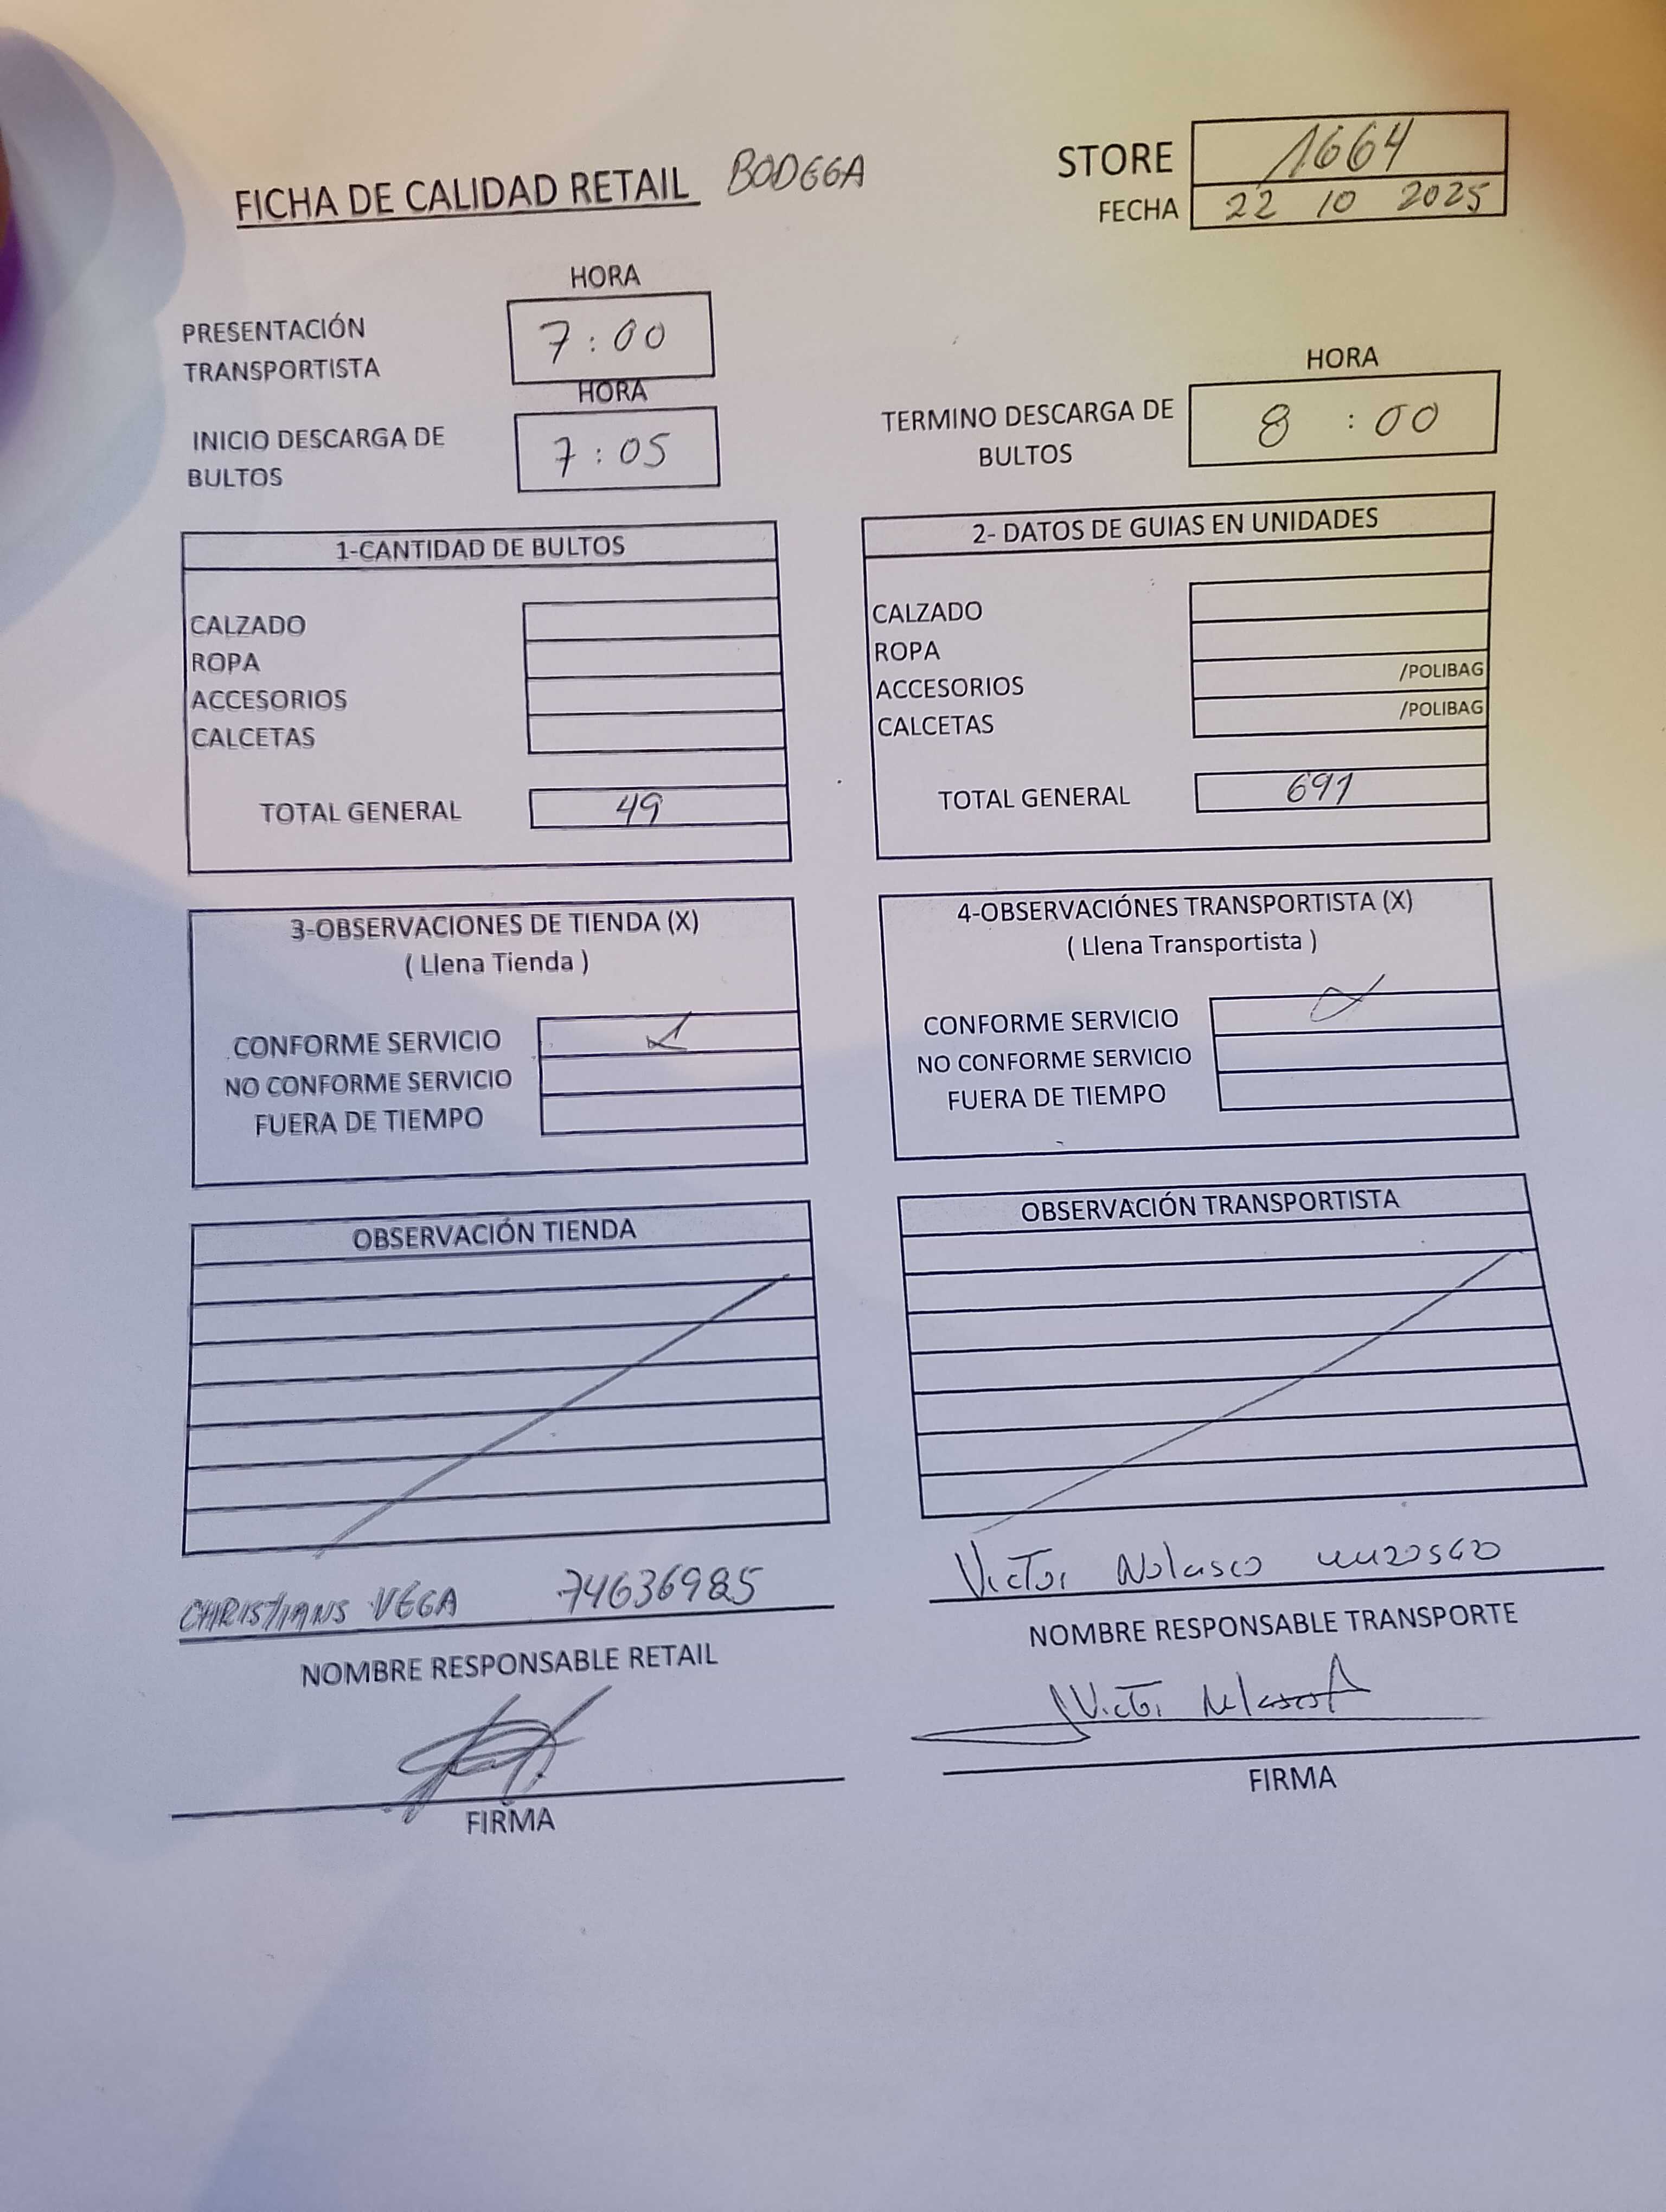 FICHA DE CALIDAD RETAIL BODEGA
STORE 1664
FECHA 22 10 2025
HORA
PRESENTACIÓN TRANSPORTISTA 7:00
HORA
INICIO DESCARGA DE BULTOS 7:05
HORA
TERMINO DESCARGA DE BULTOS 8:00
1-CANTIDAD DE BULTOS
CALZADO
ROPA
ACCESORIOS
CALCETAS
TOTAL GENERAL 49
2- DATOS DE GUIAS EN UNIDADES
CALZADO
ROPA
ACCESORIOS /POLIBAG
CALCETAS /POLIBAG
TOTAL GENERAL 691
3-OBSERVACIONES DE TIENDA (X)
( Llena Tienda )
CONFORME SERVICIO
NO CONFORME SERVICIO
FUERA DE TIEMPO
4-OBSERVACIÓNES TRANSPORTISTA (X)
( Llena Transportista )
CONFORME SERVICIO
NO CONFORME SERVICIO
FUERA DE TIEMPO
OBSERVACIÓN TIENDA
OBSERVACIÓN TRANSPORTISTA
CHRISTIANS VEGA 74636985
NOMBRE RESPONSABLE RETAIL
FIRMA
Victor Nolasco
NOMBRE RESPONSABLE TRANSPORTE
Victor Nolasco
FIRMA